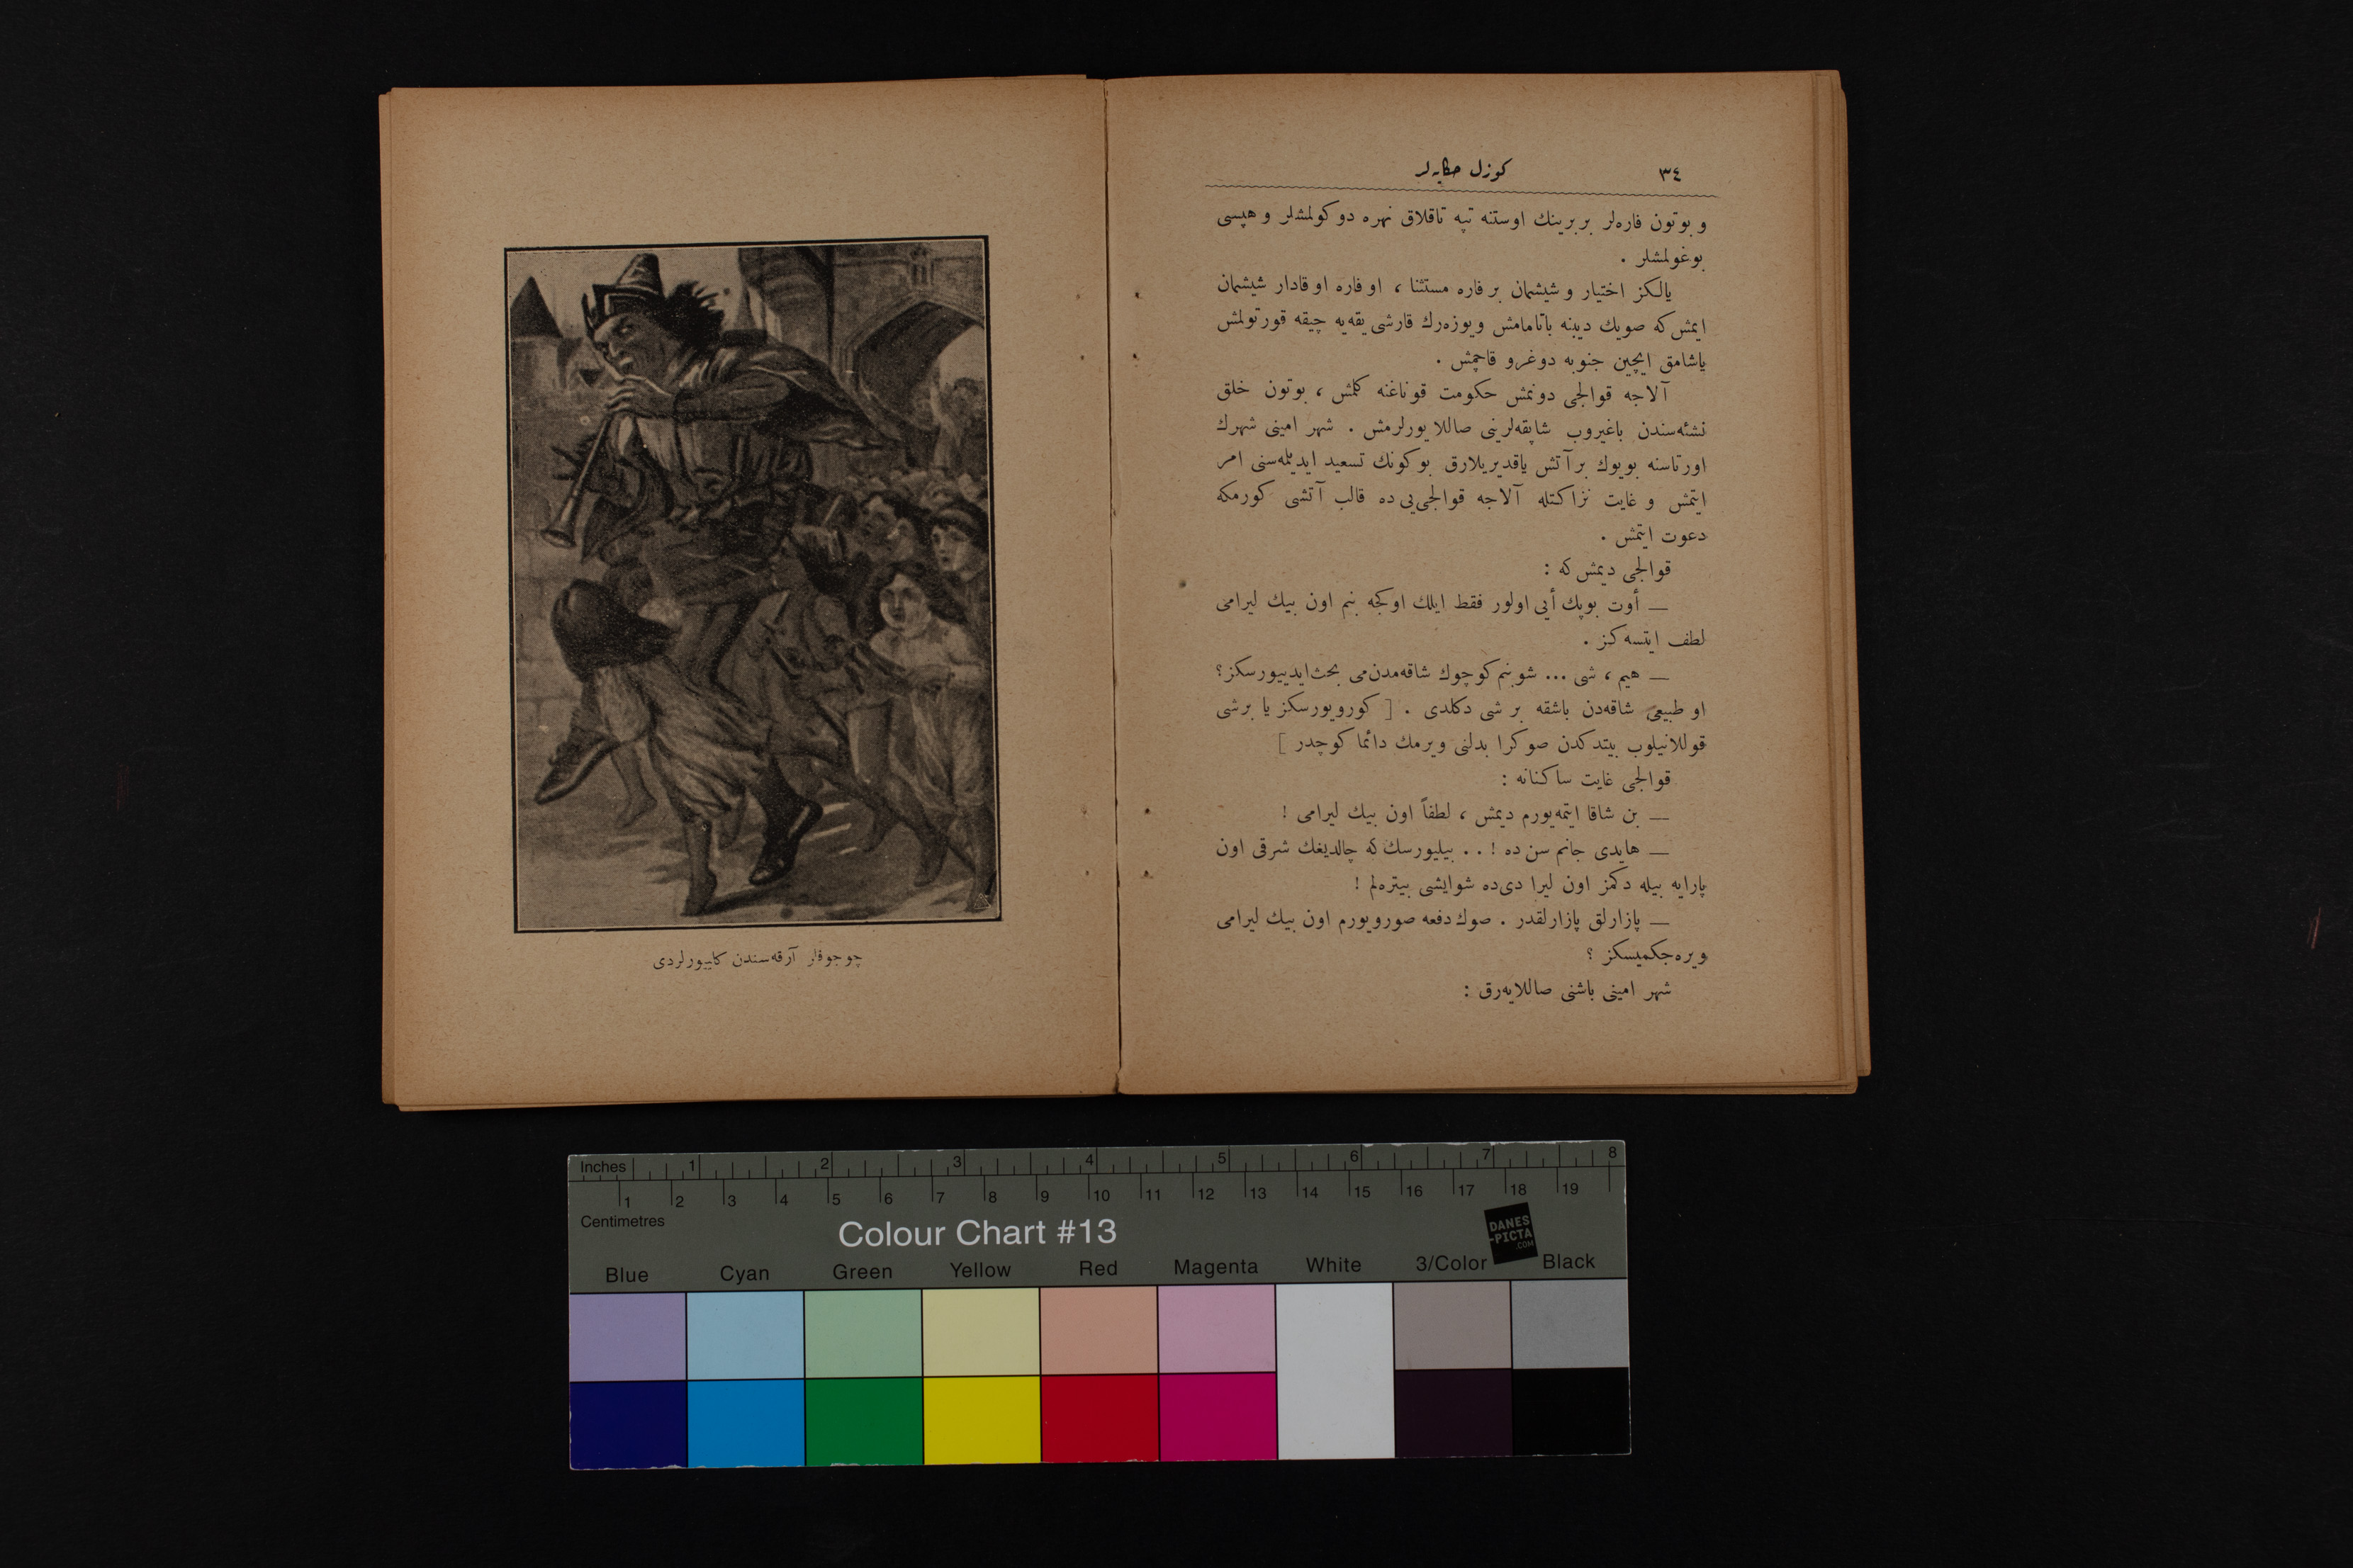 ٣٤
كوزل حكايه‌لر
و بوتون فاره‌لر بربرينك اوستنه تپه تاقلاق نهره دوكولمشلر و هپسی
بوغولمشلر .
يالكز اختيار و شيشمان بر فاره مستثنا ، او فاره او قادار شيشمان
ايمش‌كه صويك ديبنه باتامامش ويوزه‌رك قارشی يقه‌يه چيقه قورتولمش
ياشامق ايچين جنوبه دوغرو قاچمش .
آلاجه قوالجی دونمش حكومت قوناغنه كلمش ، بوتون خلق
نشئه‌سندن باغيروب شاپقه‌لرينی صاللايورلرمش . شهر امينی شهرك
اورتاسنه بويوك بر آتش ياقديريلارق بو كونك تسعيد ايديلمه‌سنی امر
ايتمش و غايت نزاكتله آلاجه قوالجی‌يی ده قالب آتشی كورمكه
دعوت ايتمش .
قوالجی ديمش‌كه :
— أوت بوپك أيی اولور فقط ايلك اوكجه بنم اون بيك ليرامی
لطف ايتسه‌كز .
— هيم ، شی ... شوبنم كوچوك شاقه‌مدن‌می بحث‌ايدييورسكز؟
او طبيعی شاقه‌دن باشقه بر شی دكلدی . [ كورويورسكز يا برشی
قوللانيلوب بيتدكدن صوكرا بدلنی ويرمك دائما كوچدر ]
قوالجی غايت ساكنانه :
— بن شاقا ايتمه‌يورم ديمش ، لطفاً اون بيك ليرامی !
— هايدی جانم سن ده ! . . بيليورسك‌كه چالديغك شرقی اون
پارايه بيله دكمز اون ليرا دی‌ده شوايشی بيتره‌لم !
— پازارلق پازارلقدر . صوك دفعه صورويورم اون بيك ليرامی
ويره‌جكميسكز ؟
شهر امينی باشنی صاللايه‌رق :
چوجوقلر آرقه‌سندن كلييورلردی
Inches 1 2 3 4 5 6 7 8
1 2 3 4 5 6 7 8 9 10 11 12 13 14 15 16 17 18 19
Centimetres
Colour Chart #13
DANES
-PICTA
.COM
Blue Cyan Green Yellow Red Magenta White 3/Color Black